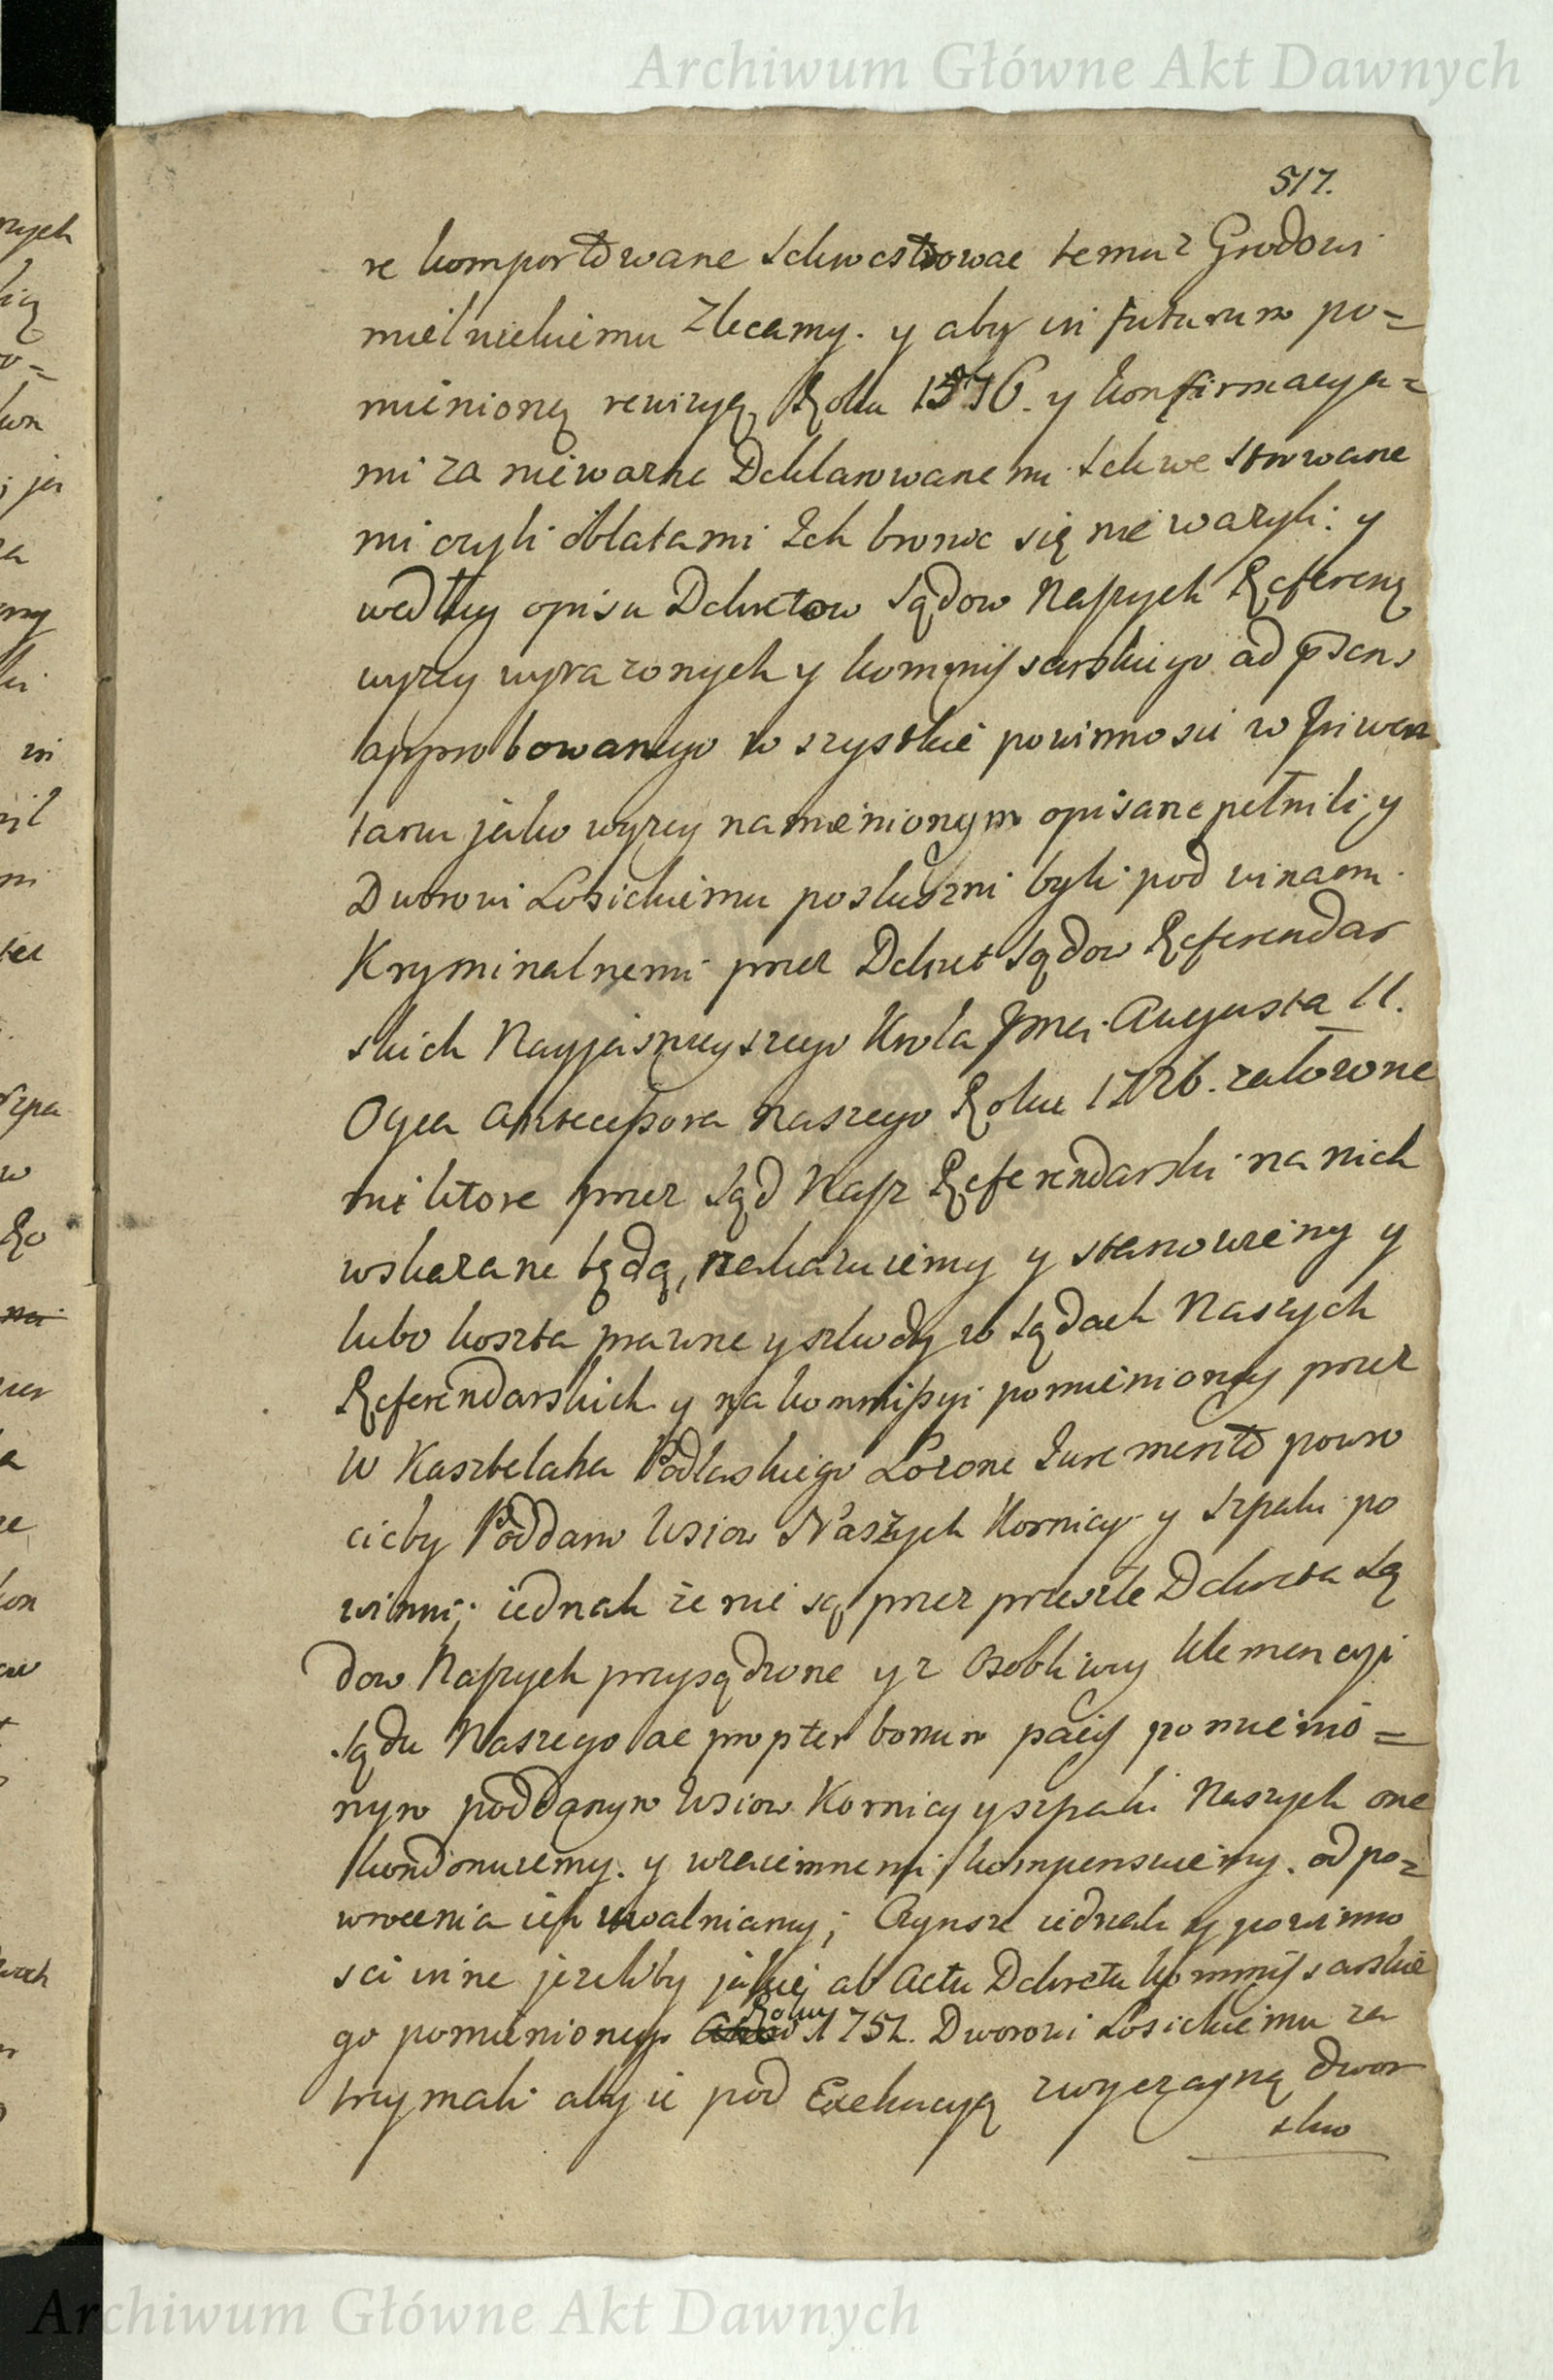 Archiwum Główne Akt Dawnych
517.
re komportowane sekwestrowac temuz Grodowi
mielnickiemu zlecamy. y aby in futurum po=
mienioną rewizyą Roku 1576. y konfirmacya=
mi za niewazne Deklarowanemi sekwestrowane
mi czyli oblatami Ich bronic się nie wazyli: y
według opisu Dekretow sądow Naszych Refereną
wyzey wyrazonych y kommissarskiego ad psens
approbowanego wszystkie powinnosci w Inwen
taru jako wyzey namienionym opisane pełnili, y
Dworowi Losickiemu posłuszni byli pod winami
Kryminalnemi przez Dekret sądow Referendar
skich Nayjasnieyszego Krola Jmci Augusta II.
Oyca Antecessora naszego Roku 1726. załozone
mi ktore przez sąd Nasz Referendarski na nich
wskazane będą, nakazuiemy y stanowiemy y
lubo koszta prawne y szkody w sądach Naszych
Referendarskich y na kommissyi pomienioney przez
W Kasztelana Podlaskiego Łozone Juramento powro
cicby Poddani wsiow Naszych Kornicy y szpaki po
winni; iednak że nie są przez przeszłe Dekreta są
dow Naszych przysądzone y z osobliwey klemencyi
sądu Naszego ac propter bonum pacis pomienio=
nym poddanym wsiow Kornicy y szpaki Naszych one
kondonuiemy. y wzaiemnemi kompensuiemy. od po=
wrocenia ich uwalniamy; Czynsze iednak y powinno
sci inne jezeliby jakiej ab Actu Dekretu kommissarskie
go pomienionego Roku 1752. Dworowi Losickiemu za
trzymali aby ie pod Exekucyą zwyczayną dwor
sko
Archiwum Główne Akt Dawnych